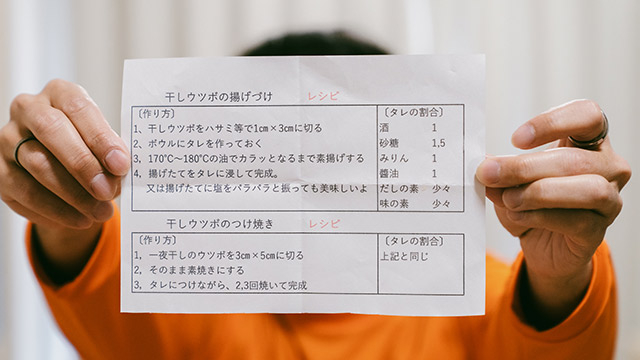 干しウツボの揚げづけ レシピ
〔作り方〕 〔タレの割合〕
1、干しウツボをハサミ等で1㎝×3㎝に切る 酒 1
2、ボウルにタレを作っておく 砂糖 1,5
3、170℃～180℃の油でカラッとなるまで素揚げする みりん 1
4、揚げたてをタレに浸して完成。 醬油 1
又は揚げたてに塩をパラパラと振っても美味しいよ だしの素 少々
味の素 少々
干しウツボのつけ焼き レシピ
〔作り方〕 〔タレの割合〕
1，一夜干しのウツボを3㎝×5㎝に切る 上記と同じ
2，そのまま素焼きにする
3，タレにつけながら、2,3回焼いて完成